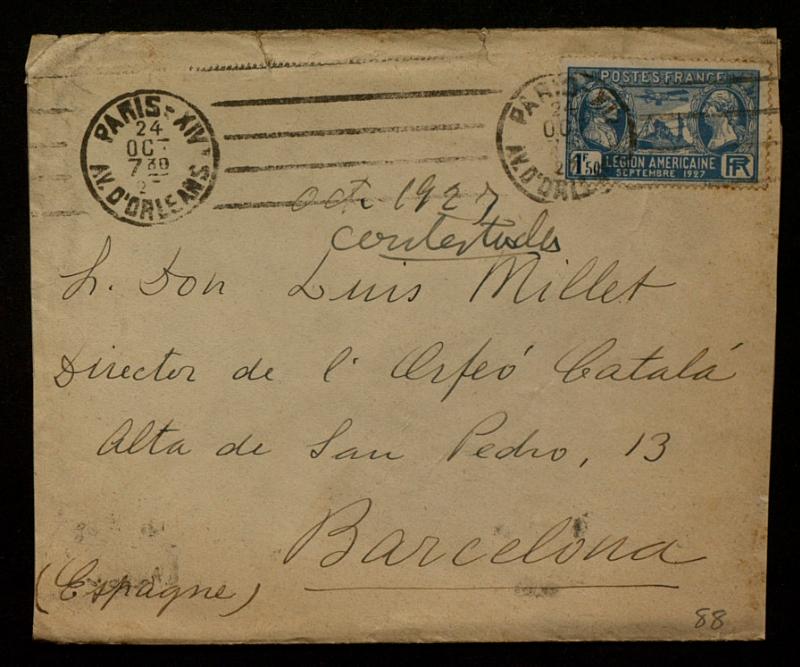 PARIS-XIV
24
OCT
7 30
2
AV. D'ORLEANS
PARIS XIV
AV. D'ORLEANS
POSTES·FRANCE
1F50
LEGION AMERICAINE
SEPTEMBRE 1927
RF
oct 1927
Don Luis Millet
Director de l' Orfeó Catalá
Alta de San Pedro, 13
Barcelona
(Espagne)
88